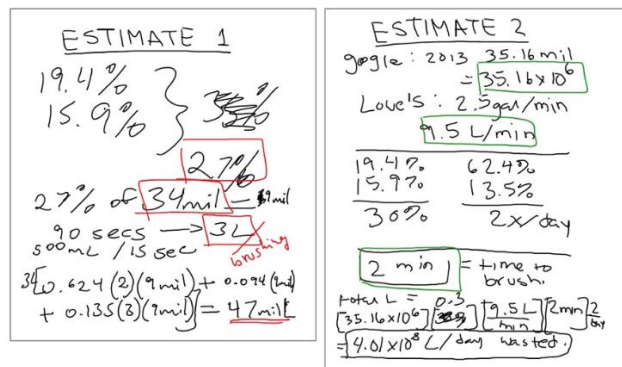 ESTIMATE 1
19.4%
15.9%
27%
27% of 34mil — 9mil
90 secs → 3L
500mL / 15 sec
brushing
3[0.624(2)(9mil) + 0.094(9mil)
+ 0.135(3)(9mil)] = 47milL
ESTIMATE 2
google: 2013 35.16 mil
= 35.16x10⁶
Lowe's: 2.5gal/min
9.5 L/min
19.4% 62.4%
15.9% 13.5%
30% 2x/day
2 min = time to
brush.
total L = 0.3
[35.16x10⁶] [9.5L/min] [2min] 2/day
= 4.01x10⁸ L/day wasted.